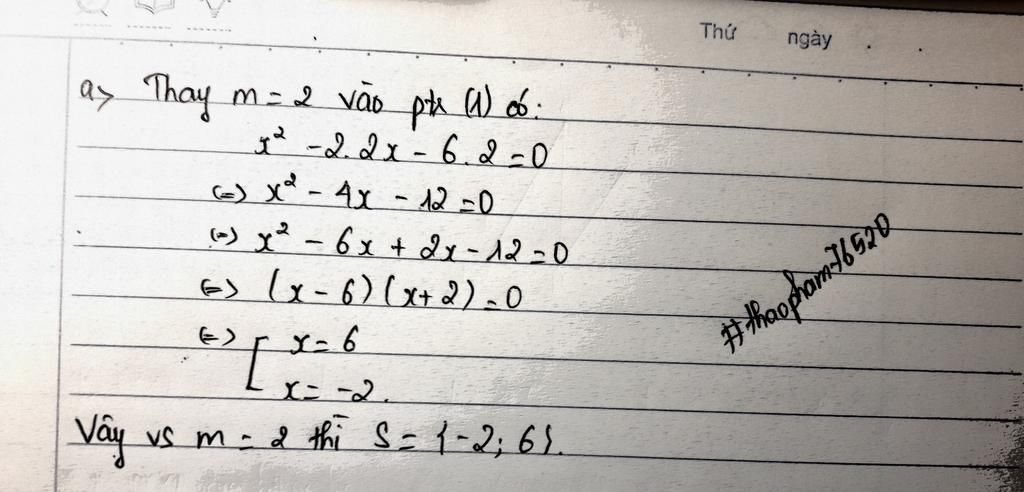 Thứ ngày
a> Thay m = 2 vào ptr (1) có:
x² - 2.2x - 6.2 = 0
(=) x² - 4x - 12 = 0
(=) x² - 6x + 2x - 12 = 0
(=) (x - 6)(x + 2) = 0
(=) [ x = 6
x = -2.
Vậy vs m = 2 thì S = {-2; 6}.
#thaopham76520